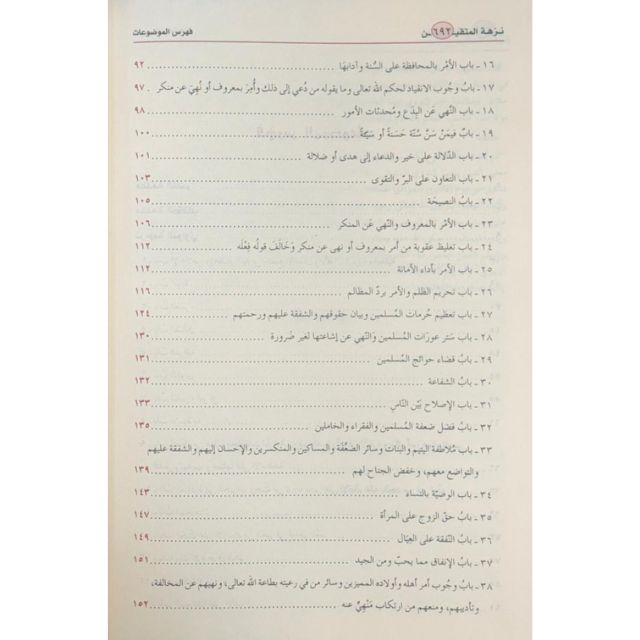 نزهة المتقيـ ٦٩٢ ـن
فهرس الموضوعات
١٦ ـ باب الأمْر بالمحافظة على السُّنة وآدابهَا ٩٢
١٧ ـ بابُ وجُوب الانقياد لحكم الله تعالى وما يقوله من دُعي إلى ذلك وأُمِرَ بمعروف أو نُهِيَ عن منكر . ٩٧
١٨ ـ باب النَّهي عَن البِدَع ومُحدثات الأمور ٩٨
١٩ ـ بابُ فيمَنْ سَنَّ سُنَّة حَسَنَةً أو سَيّئَةً ١٠٠
٢٠ ـ باب الدّلالة على خير والدعاء إلى هدى أو ضلالة ١٠١
٢١ ـ باب التعاون على البرّ والتقوى ١٠٣
٢٢ ـ بابُ النصيحَة ١٠٥
٢٣ ـ بابُ الأمْر بالمعروف والنَّهي عَن المنكر ١٠٦
٢٤ ـ باب تغليظ عقوبة من أمر بمعروف أو نهى عن منكر وَخَالَفَ قولُه فِعْلَه ١١٢
٢٥ ـ باب الأمر بأداء الأمانة ١١٢
٢٦ ـ باب تحريم الظلم والأمر بردّ المظالم ١١٦
٢٧ ـ باب تعظيم حُرمات المُسلمين وبيان حقوقهم والشفقة عليهم ورحمتهم ١٢٤
٢٨ ـ باب سَتر عورَات المُسلمين وَالنَّهي عن إشاعتها لغير ضَرورة ١٣٠
٢٩ ـ بابُ قضاء حوائج المُسلمين ١٣١
٣٠ ـ بابُ الشفاعة ١٣٢
٣١ ـ بابُ الإصلاح بَيْن النَّاسِ ١٣٣
٣٢ ـ بابُ فضل ضعفة المُسلمين والفقراء والخاملين ١٣٥
٣٣ ـ باب مُلاطفة اليتيم والبنات وسائر الضَعَفَة والمساكين والمنكسرين والإحسان إليهم والشفقة عليهم
والتواضع معهم، وخفض الجناح لهم ١٣٩
٣٤ ـ باب الوصيّة بالنساء ١٤٣
٣٥ ـ بابُ حقّ الزوج على المرأة ١٤٧
٣٦ ـ بابُ النّفقة على العِيَال ١٤٩
٣٧ ـ بابُ الإنفاق مما يحبّ ومن الجيد ١٥١
٣٨ ـ بابُ وجُوب أمر أهله وأولاده المميزين وسائر من في رعيته بطاعة الله تعالى، ونهيهم عن المخالفة،
وتأديبهم، ومنعهم من ارتكاب مَنْهِيّ عنه ١٥٢